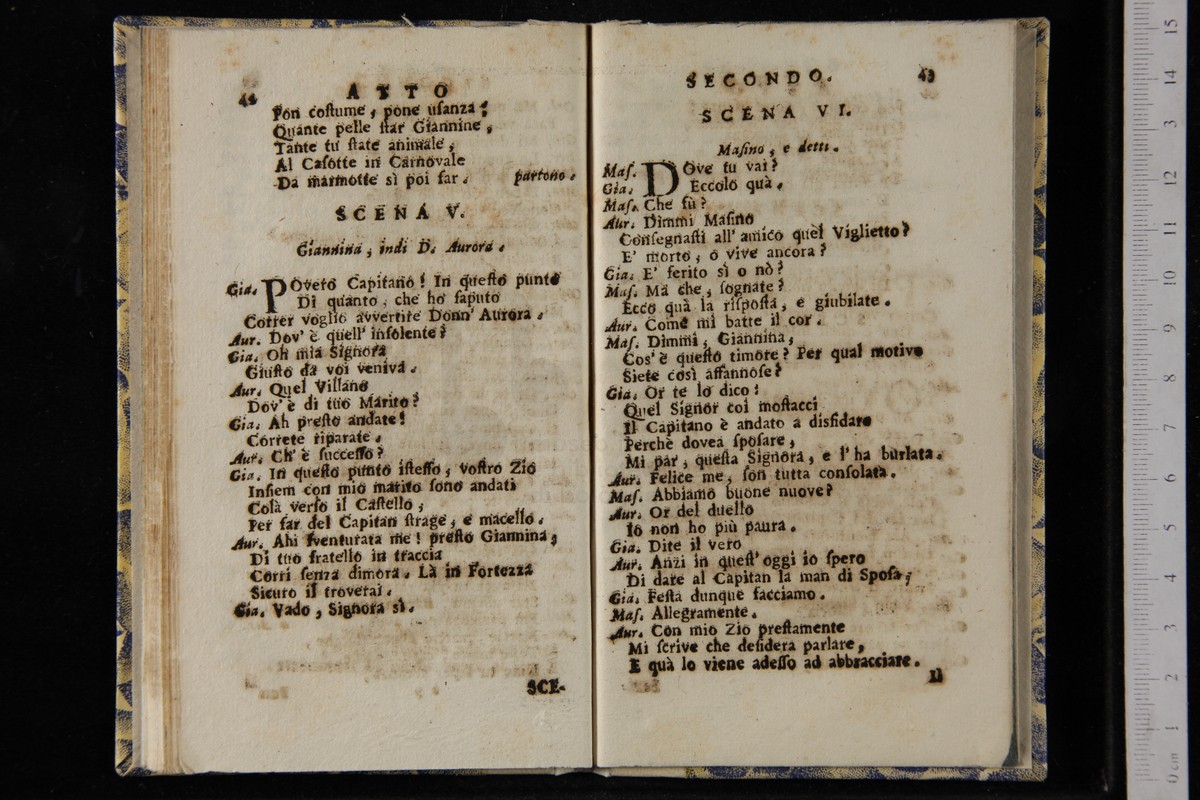 42
ATTO
Pon coſtume, pone uſanza;
Quante pelle ſtar Giannine,
Tante tu ſtate animale,
Al Caſotte in Carnovale
Da marmotte sì poi far. partono.
SCENA V.
Giannina, indi D. Aurora.
Gia. POvero Capitano! In queſto punto
Di quanto, che ho ſaputo
Correr voglio avvertire Donn' Aurora.
Aur. Dov' è quell' inſolente?
Gia. Oh mia Signora
Giuſto da voi veniva.
Aur. Quel Villano
Dov' è di tuo Marito?
Gia. Ah preſto andate!
Correte riparate.
Aur. Ch' è ſucceſſo?
Gia. In queſto punto iſteſſo, voſtro Zio
Inſiem con mio marito ſono andati
Colà verſo il Caſtello,
Per far del Capitan ſtrage, e macello.
Aur. Ahi ſventurata me! preſto Giannina,
Di tuo fratello in traccia
Corri ſenza dimora. Là in Fortezza
Sicuro il troverai.
Gia. Vado, Signora sì.
SCE-
SECONDO.
43
SCENA VI.
Maſino, e detti.
Maſ. DOve tu vai?
Gia. Eccolo quà.
Maſ. Che fù?
Aur. Dimmi Maſino
Conſegnaſti all' amico quel Viglietto?
E' morto, o vive ancora?
Gia. E' ferito sì o nò?
Maſ. Ma che, ſognate?
Ecco quà la riſpoſta, e giubilate.
Aur. Come mi batte il cor.
Maſ. Dimmi, Giannina,
Cos' è queſto timore? Per qual motivo
Siete così affannoſe?
Gia. Or te lo dico:
Quel Signor coi moſtacci
Il Capitano è andato a disfidare
Perchè dovea ſpoſare,
Mi par, queſta Signora, e l' ha burlata.
Aur. Felice me, ſon tutta conſolata.
Maſ. Abbiamo buone nuove?
Aur. Or del duello
Io non ho più paura.
Gia. Dite il vero
Aur. Anzi in queſt' oggi io ſpero
Di dare al Capitan la man di Spoſa;
Gia. Feſta dunque facciamo.
Maſ. Allegramente.
Aur. Con mio Zio preſtamente
Mi ſcrive che deſidera parlare,
E quà lo viene adeſſo ad abbracciare.
Il
15
14
3
12
11
10
9
8
7
6
5
4
3
2
1
0 cm